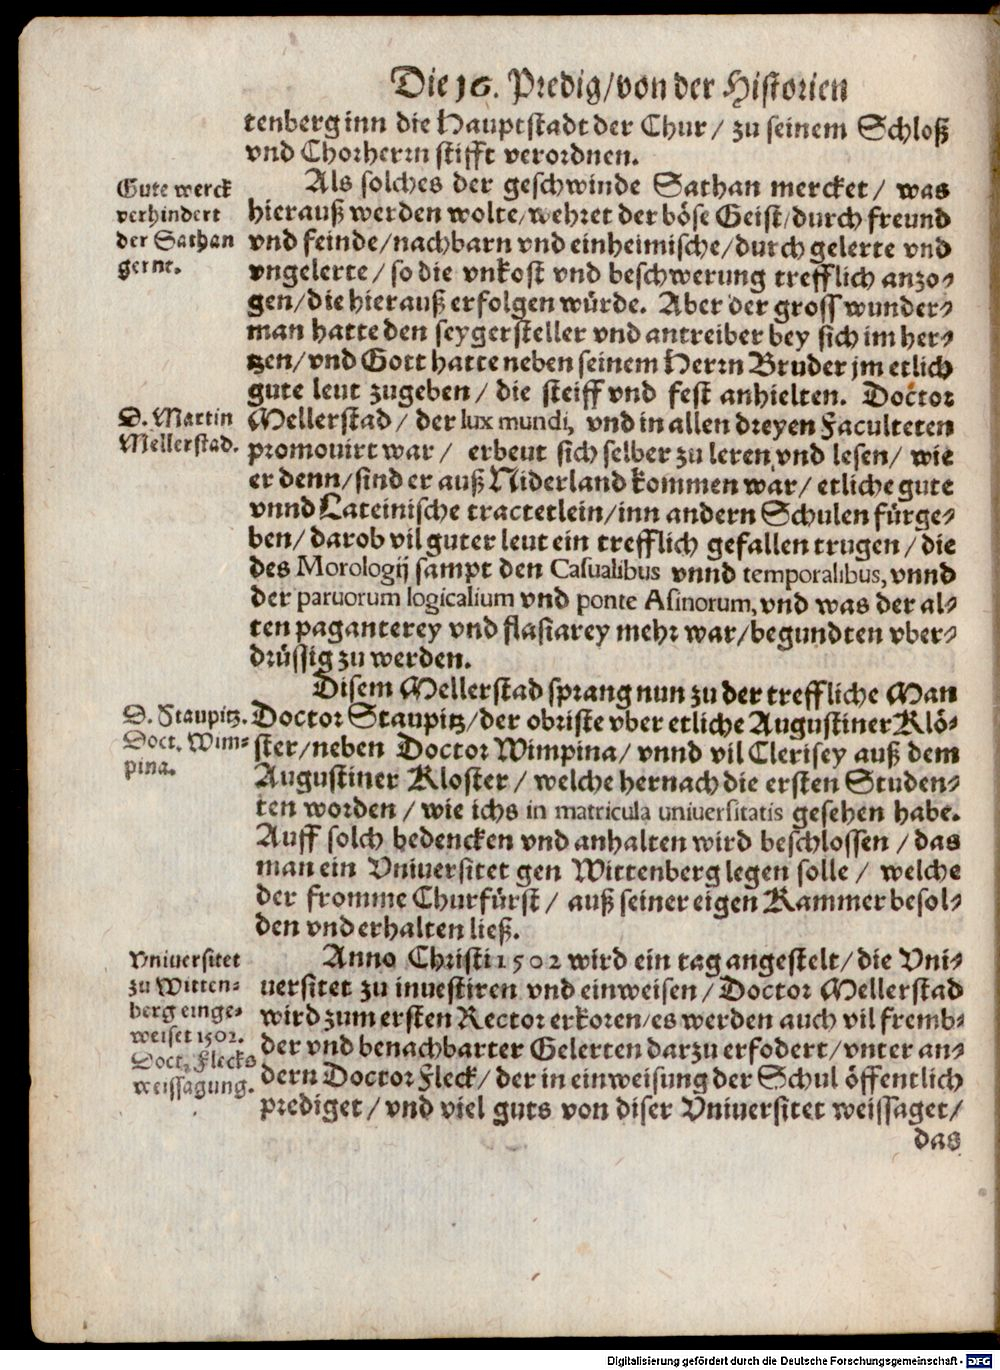 Die 16. Predig/von der Historien
tenberg inn die Hauptstadt der Chur/ zu seinem Schloß
vnd Chorherrn stifft verordnen.
Als solches der geschwinde Sathan mercket/ was
hierauß werden wolte/wehret der böse Geist/durch freund
vnd feinde/nachbarn vnd einheimische/durch gelerte vnd
vngelerte/ so die vnkost vnd beschwerung trefflich anzo-
gen/die hierauß erfolgen würde. Aber der gross wunder-
man hatte den seygersteller vnd antreiber bey sich im her-
tzen/vnd Gott hatte neben seinem Herrn Bruder jm etlich
gute leut zugeben/ die steiff vnd fest anhielten. Doctor
Mellerstad/ der lux mundi, vnd in allen dreyen Faculteten
promouirt war/ erbeut sich selber zu leren vnd lesen/ wie
er denn/sind er auß Niderland kommen war/ etliche gute
vnnd Lateinische tractetlein/inn andern Schulen fürge-
ben/ darob vil guter leut ein trefflich gefallen trugen/die
des Morologij sampt den Casualibus vnnd temporalibus, vnnd
der paruorum logicalium vnd ponte Asinorum, vnd was der al-
ten paganterey vnd flasiarey mehr war/begundten vber-
drüssig zu werden.
Disem Mellerstad sprang nun zu der treffliche Man
Doctor Staupitz/der obriste vber etliche Augustiner Klö-
ster/neben Doctor Wimpina/ vnnd vil Clerisey auß dem
Augustiner Kloster/ welche hernach die ersten Studen-
ten worden/ wie ichs in matricula uniuersitatis gesehen habe.
Auff solch bedencken vnd anhalten wird beschlossen/das
man ein Vniuersitet gen Wittenberg legen solle/ welche
der fromme Churfürst/ auß seiner eigen Kammer besol-
den vnd erhalten ließ.
Anno Christi 1502 wird ein tag angestelt/die Vni-
uersitet zu inuestiren vnd einweisen/Doctor Mellerstad
wird zum ersten Rector erkoren/es werden auch vil fremb-
der vnd benachbarter Gelerten darzu erfodert/vnter an-
dern Doctor Fleck/ der in einweisung der Schul öffentlich
prediget/ vnd viel guts von diser Vniuersitet weissaget/
das
Gute werck
verhindert
der Sathan
gerne.
D. Martin
Mellerstad.
D. Staupitz.
Doct. Wim-
pina.
Vniuersitet
zu Witten-
berg einge-
weiset 1502.
Doct. Flecks
weissagung.
Digitalisierung gefördert durch die Deutsche Forschungsgemeinschaft - DFG